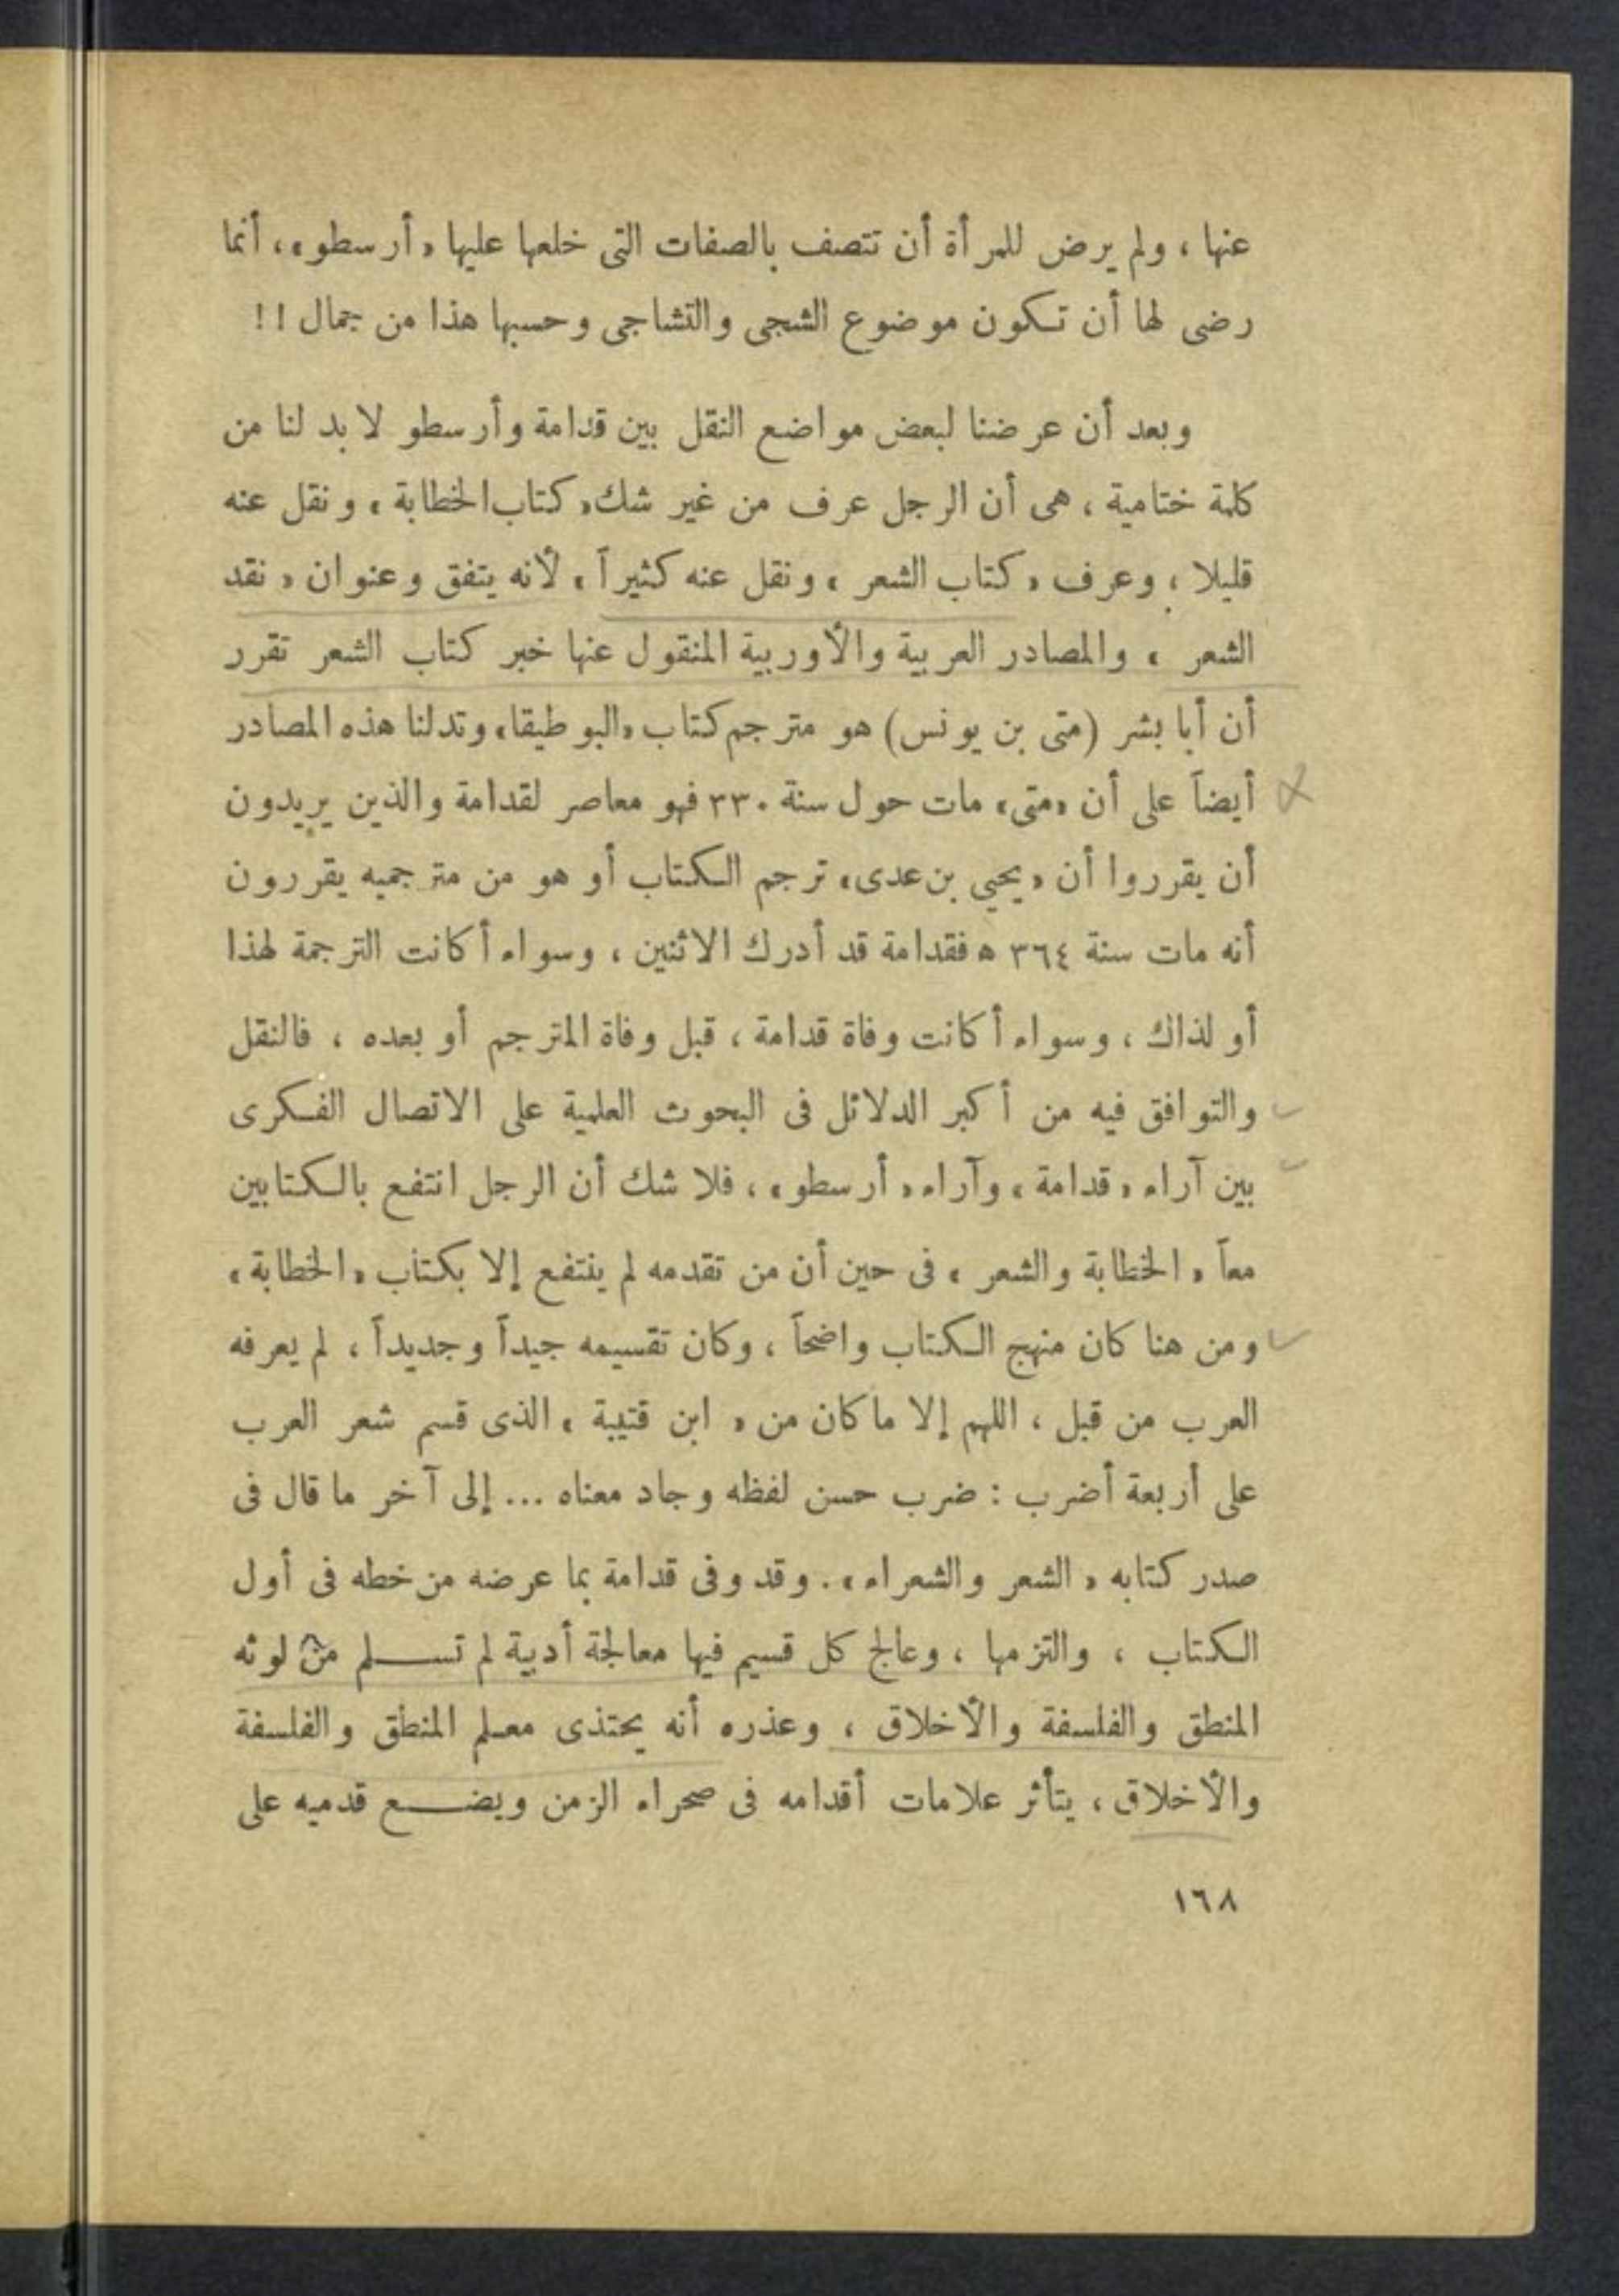 عنها ، ولم يرض للمرأة أن تتصف بالصفات التى خلعها عليها «أرسطو» ، أنما
رضى لها أن تكون موضوع الشجى والتشاجى وحسبها هذا من جمال !!
وبعد أن عرضنا لبعض مواضع النقل بين قدامة وأرسطو لا بد لنا من
كلمة ختامية ، هى أن الرجل عرف من غير شك «كتاب الخطابة» ونقل عنه
قليلا ، وعرف «كتاب الشعر» ونقل عنه كثيراً ، لأنه يتفق وعنوان «نقد
الشعر» ، والمصادر العربية والأوربية المنقول عنها خبر كتاب الشعر تقرر
أن أبا بشر (متى بن يونس) هو مترجم كتاب «البوطيقا» وتدلنا هذه المصادر
أيضاً على أن «متى» مات حول سنة ٣٣٠ فهو معاصر لقدامة والذين يريدون
أن يقرروا أن «يحيي بن عدى» ترجم الكتاب أو هو من مترجميه يقررون
أنه مات سنة ٣٦٤ ه فقدامة قد أدرك الاثنين ، وسواء أكانت الترجمة لهذا
أو لذاك ، وسواء أكانت وفاة قدامة ، قبل وفاة المترجم أو بعده ، فالنقل
والتوافق فيه من أكبر الدلائل فى البحوث العلمية على الاتصال الفكرى
بين آراء «قدامة» وآراء «أرسطو» ، فلا شك أن الرجل انتفع بالكتابين
معاً «الخطابة والشعر» فى حين أن من تقدمه لم ينتفع إلا بكتاب «الخطابة»
ومن هنا كان منهج الكتاب واضحاً ، وكان تقسيمه جيداً وجديداً ، لم يعرفه
العرب من قبل ، اللهم إلا ما كان من «ابن قتيبة» الذى قسم شعر العرب
على أربعة أضرب : ضرب حسن لفظه وجاد معناه ... إلى آخر ما قال فى
صدر كتابه «الشعر والشعراء» . وقد وفى قدامة بما عرضه من خطه فى أول
الكتاب ، والتزمها ، وعالج كل قسيم فيها معالجة أدبية لم تسلم من لوثه
المنطق والفلسفة والأخلاق ، وعذره أنه يحتذى معلم المنطق والفلسفة
والأخلاق ، يتأثر علامات أقدامه فى صحراء الزمن ويضع قدميه على
١٦٨